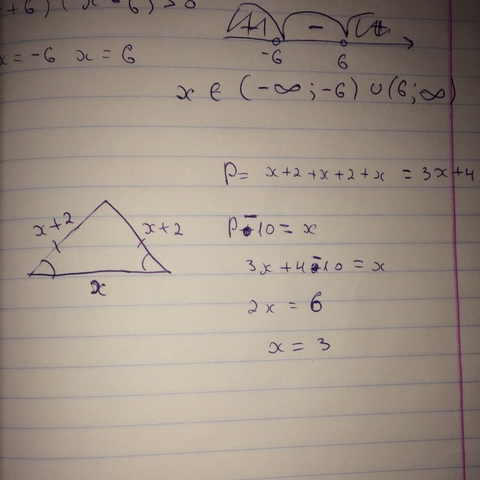 +6) (x-6) >0
+ - +
-6 6
x=-6 x=6
x ∈ (-∞;-6) ∪ (6;∞)
P= x+2+x+2+x = 3x+4
x+2 x+2
x
P-10=x
3x+4-10=x
2x=6
x=3